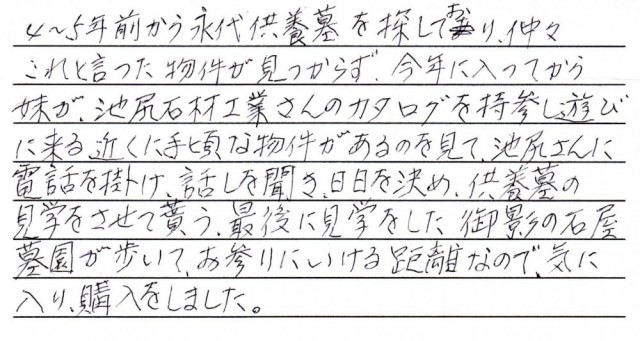 4～5年前から永代供養墓を探しており、仲々
これと言った物件が見つからず、今年に入ってから
妹が、池尻石材工業さんのカタログを持参し、遊び
に来る、近くに手頃な物件があるのを見て、池尻さんに
電話を掛け、話しを聞き、日日を決め、供養墓の
見学をさせて貰う、最後に見学をした御影の石屋
墓園が歩いて、お参りにいける距離なので、気に
入り、購入をしました。